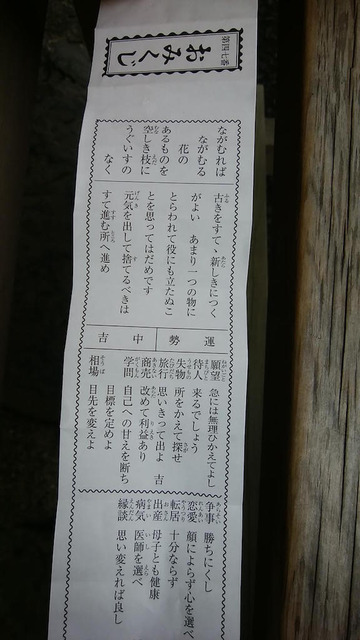 第四七番
おみくじ
ながむれば
ながむる
花の
あるものを
空しき枝に
うぐいすの
なく
古きをすて、新しきにつく
がよい　あまり一つの物に
とらわれて役にも立たぬこ
とを思ってはだめです
元気を出して捨てるべきは
すて進む所へ進め
運勢　中吉
願望　急には無理ひかえてよし
待人　来るでしょう
失物　所をかえて探せ
旅行　思いきって出よ　吉
商売　改めて利益あり
学問　自己への甘えを断ち
目標を定めよ
相場　目先を変えよ
争事　勝ちにくし
恋愛　顔によらず心を選べ
転居　十分ならず
出産　母子とも健康
病気　医師を選べ
縁談　思い変えれば良し